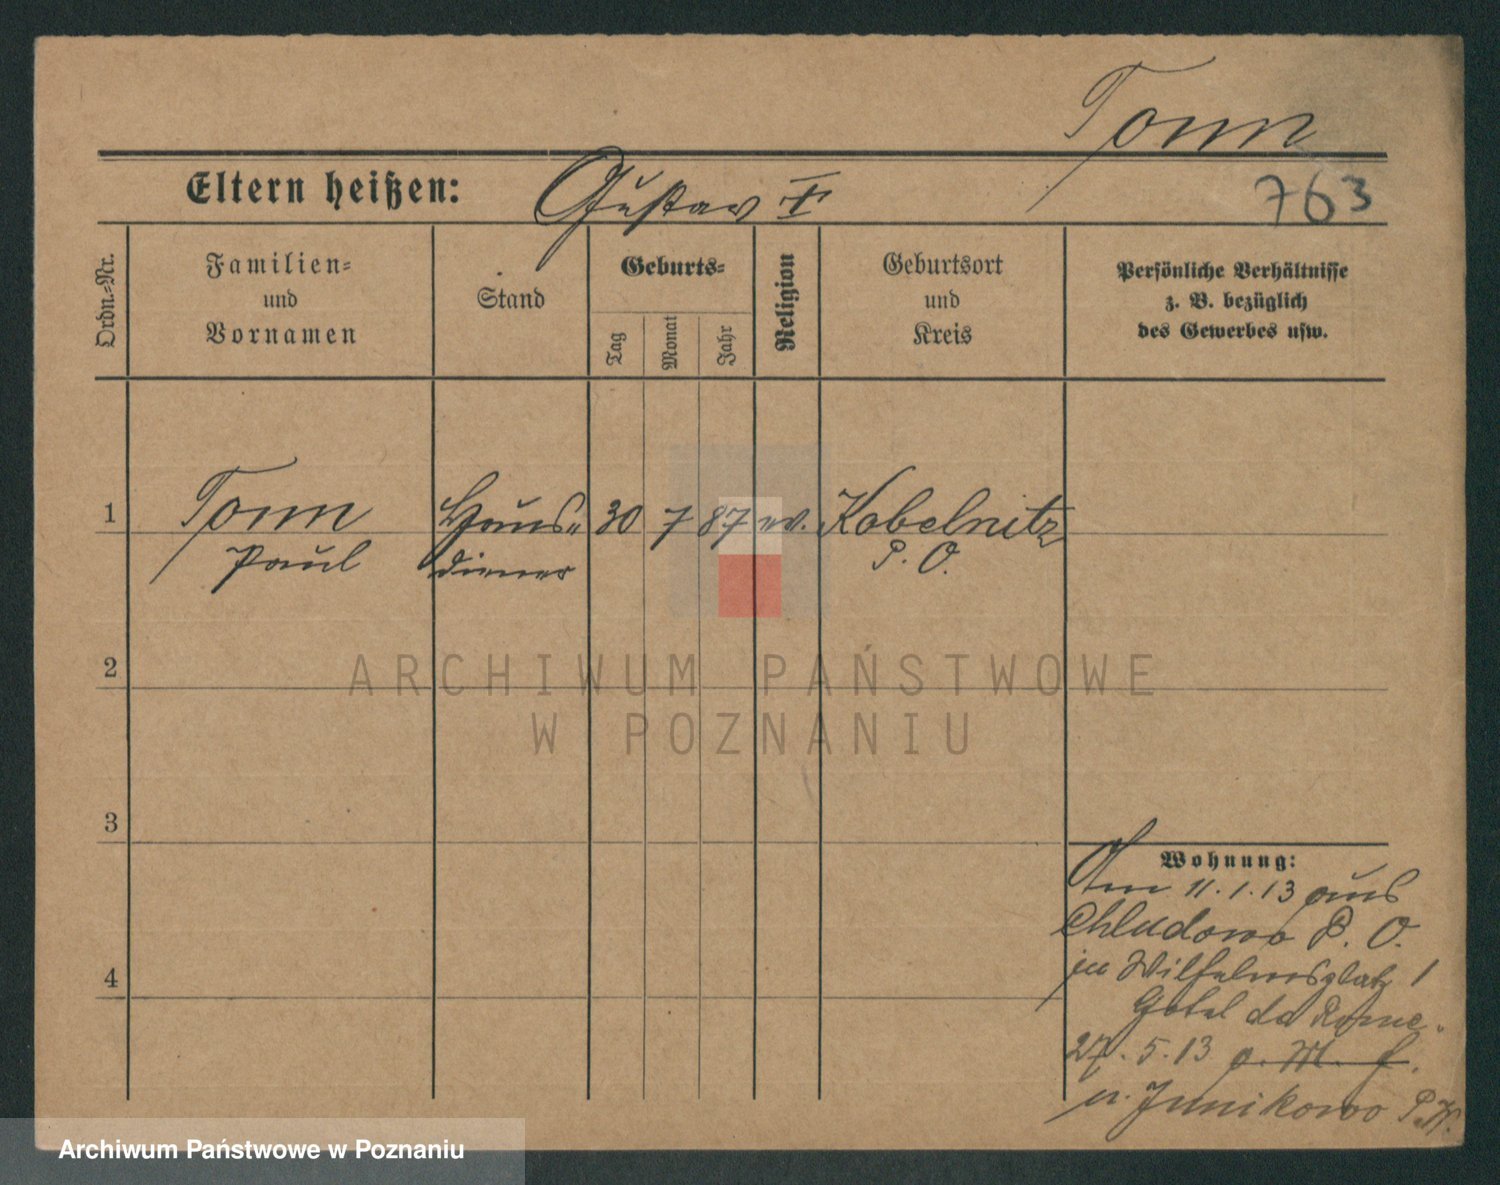 Tonn
Eltern heißen: Gustav T
763
Ordn.=Nr.
Familien=
und
Vornamen
Stand
Geburts=
Tag
Monat
Jahr
Religion
Geburtsort
und
Kreis
Persönliche Verhältnisse
z. B. bezüglich
des Gewerbes usw.
1 Tonn Haus= 30 7 87 ev. Kobelnitz
Paul diener P. O.
2
3
4
Wohnung:
Am 11.1.13 aus
Chludowo P. O.
in Wilhelmsplatz 1
Hotel de Rome.
27.5.13
n. Junikowo P.W.
ARCHIWUM PAŃSTWOWE
W POZNANIU
Archiwum Państwowe w Poznaniu